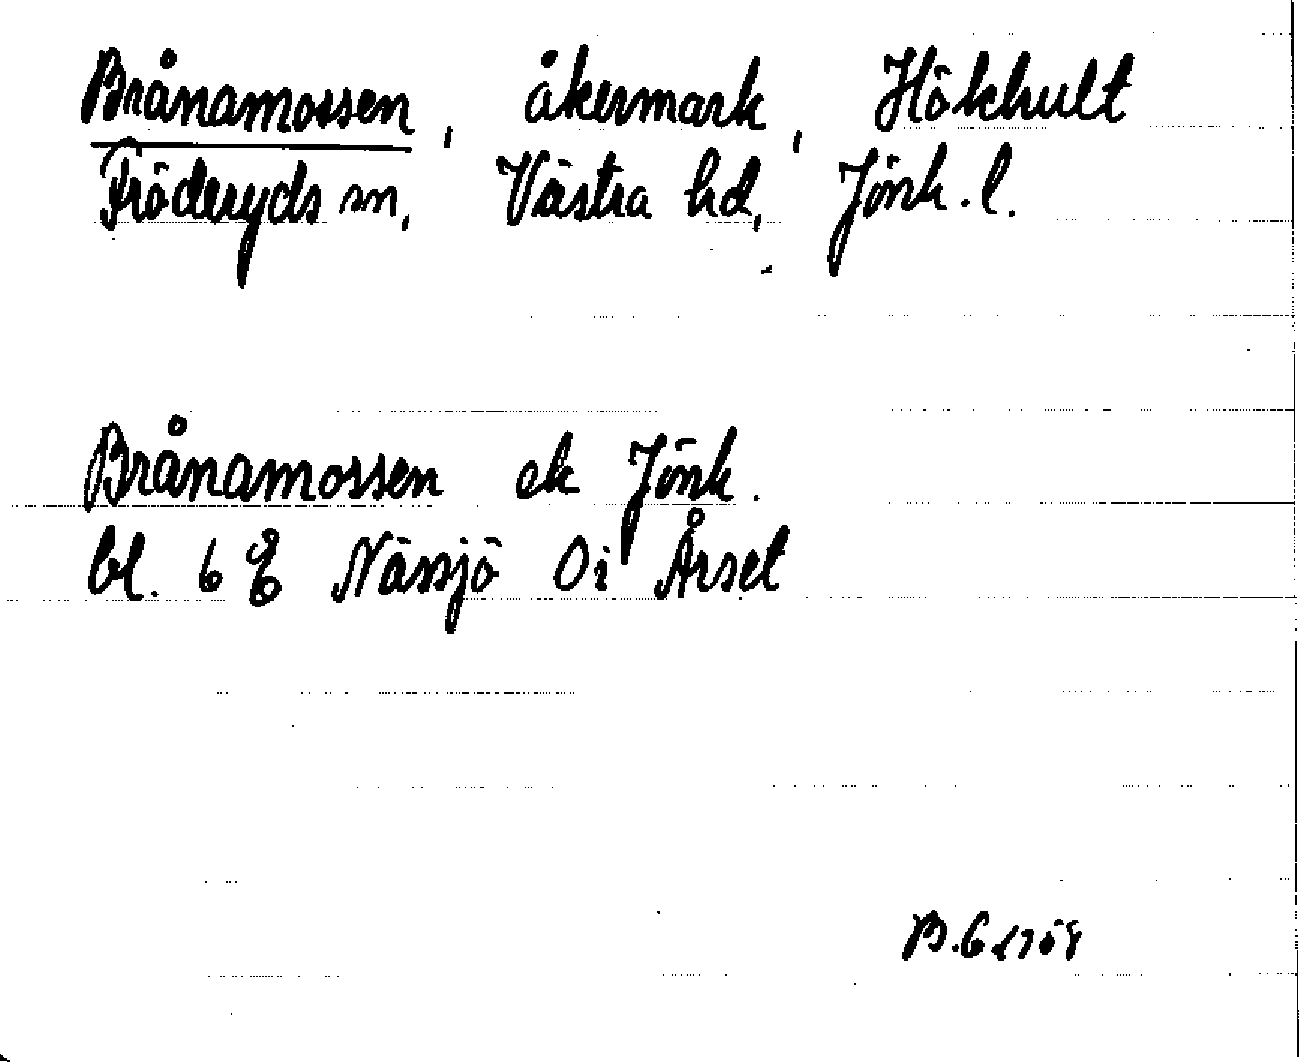 Brånamossen, åkermark, Hökhult
Fröderyds sn, Västra hd, Jönk. l.
Brånamossen ek Jönk.
bl. 6 E Nässjö 0 i Årset